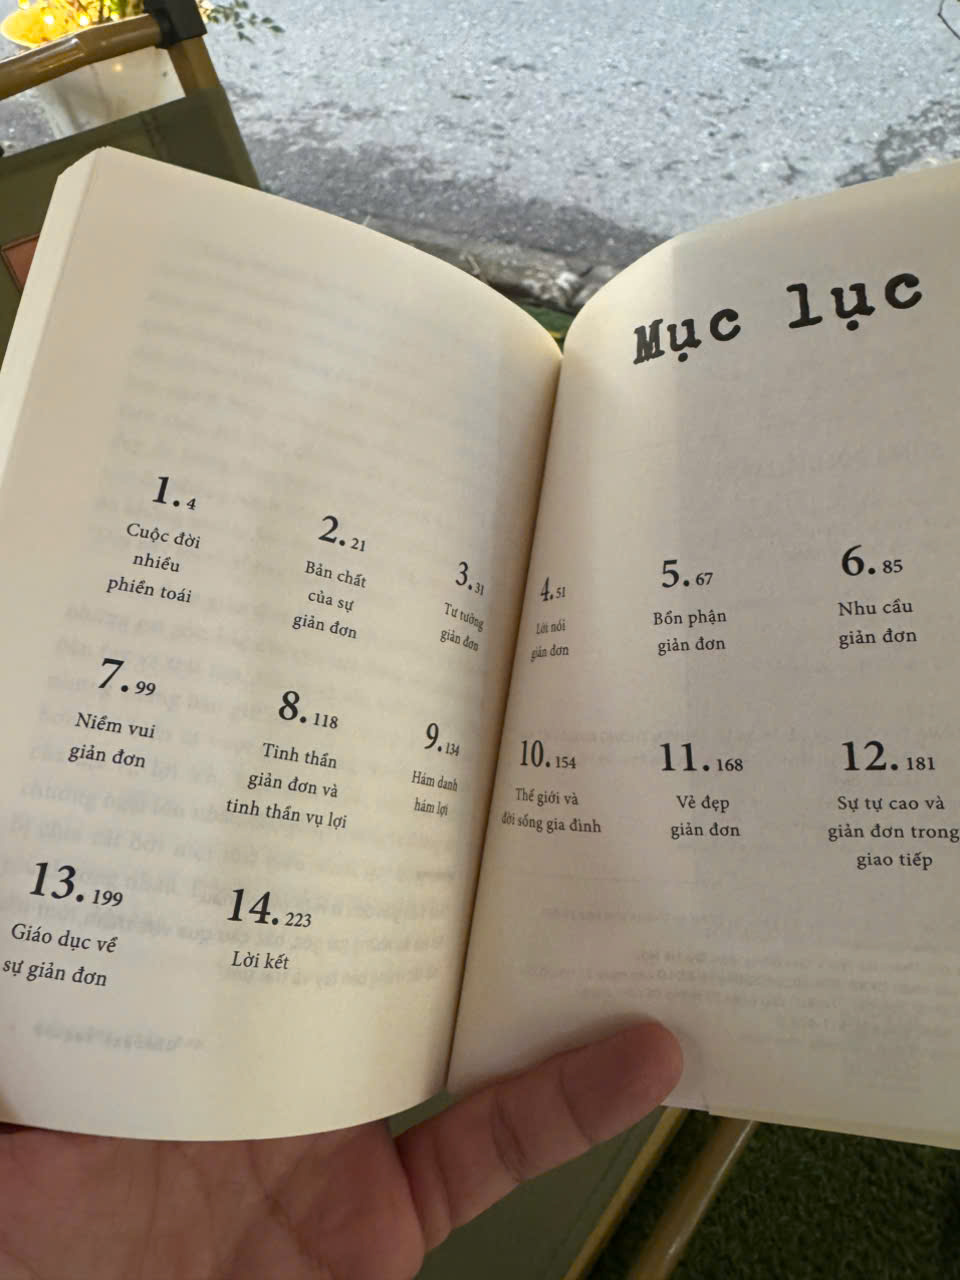 Mục lục
1. 4
Cuộc đời
nhiều
phiền toái
2. 21
Bản chất
của sự
giản đơn
3. 31
Tư tưởng
giản đơn
4. 51
Lời nói
giản đơn
5. 67
Bổn phận
giản đơn
6. 85
Nhu cầu
giản đơn
7. 99
Niềm vui
giản đơn
8. 118
Tinh thần
giản đơn và
tinh thần vụ lợi
9. 134
Hám danh
hám lợi
10. 154
Thế giới và
đời sống gia đình
11. 168
Vẻ đẹp
giản đơn
12. 181
Sự tự cao và
giản đơn trong
giao tiếp
13. 199
Giáo dục về
sự giản đơn
14. 223
Lời kết